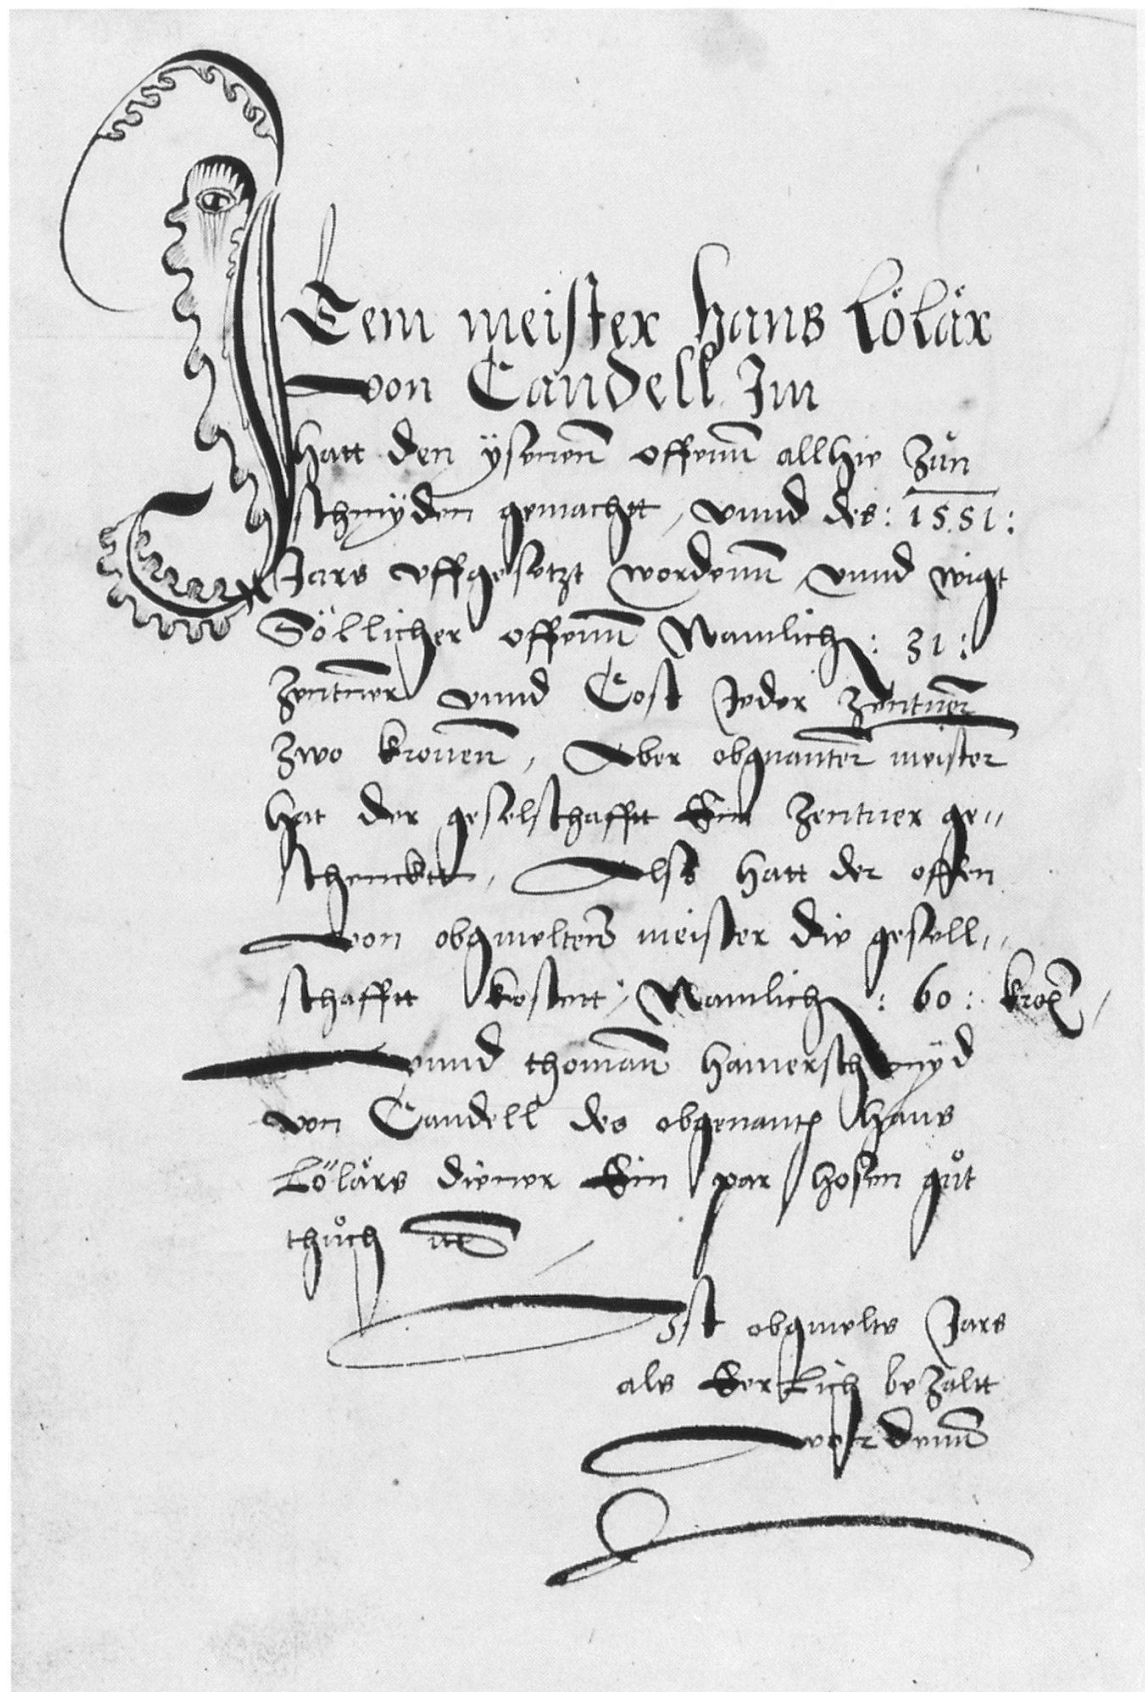 Item meister hans Lölär
von Candell Im
hatt den ÿsenen̄ offenn̄ allhie Zůn
schmÿden gemachtt, vnnd des: 1551:
Jars vffgesetzt wordenn̄, vnnd wigt
Söllicher offenn̄ Namlich: 31:
Zentner vnnd Cost Jeder Zentner
Zwo kronen̄, Aber obgnanter meister
Hat der geselschafftt Ein Zentner ge„
schencktt, Also hatt der offen
von obgmeltem meister die gesell„
schafftt kostett, Namlich: 60: kro
vnnd thoman̄ hamerschmÿd
von Candell des obgenant hans
Lölärs diener Ein par hosen gůt
thůch
Ist obgmelts Jars
als Eerlich beZaltt
wordenn̄